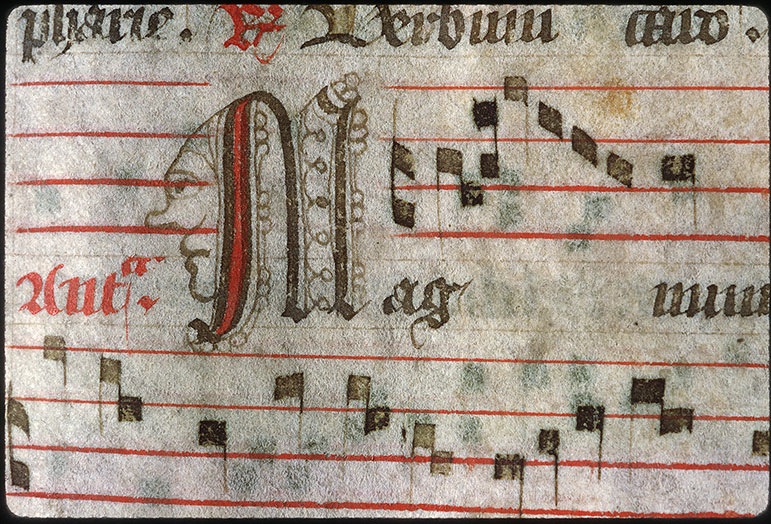 pharie. ℟ Verbum caro.
Antᵃ. Mag num